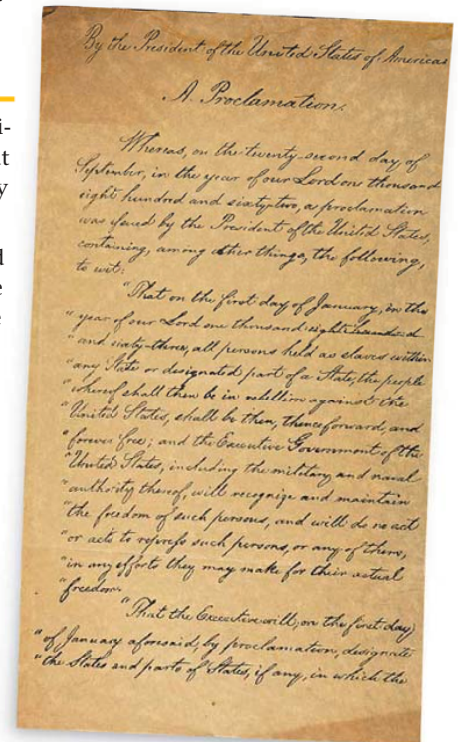 i-
t
y
d
e
By the President of the United States of America:
A Proclamation.
Whereas, on the twenty-second day of
September, in the year of our Lord one thousand
eight hundred and sixty-two, a proclamation
was issued by the President of the United States,
containing, among other things, the following,
to wit:
"That on the first day of January, in the
"year of our Lord one thousand eight hundred
"and sixty-three, all persons held as slaves within
"any State or designated part of a State, the people
"whereof shall then be in rebellion against the
"United States, shall be then, thenceforward, and
"forever free; and the Executive Government of the
"United States, including the military and naval
"authority thereof, will recognize and maintain
"the freedom of such persons, and will do no act
"or acts to repress such persons, or any of them,
"in any efforts they may make for their actual
"freedom.
"That the Executive will, on the first day
"of January aforesaid, by proclamation, designate
"the States and parts of States, if any, in which the